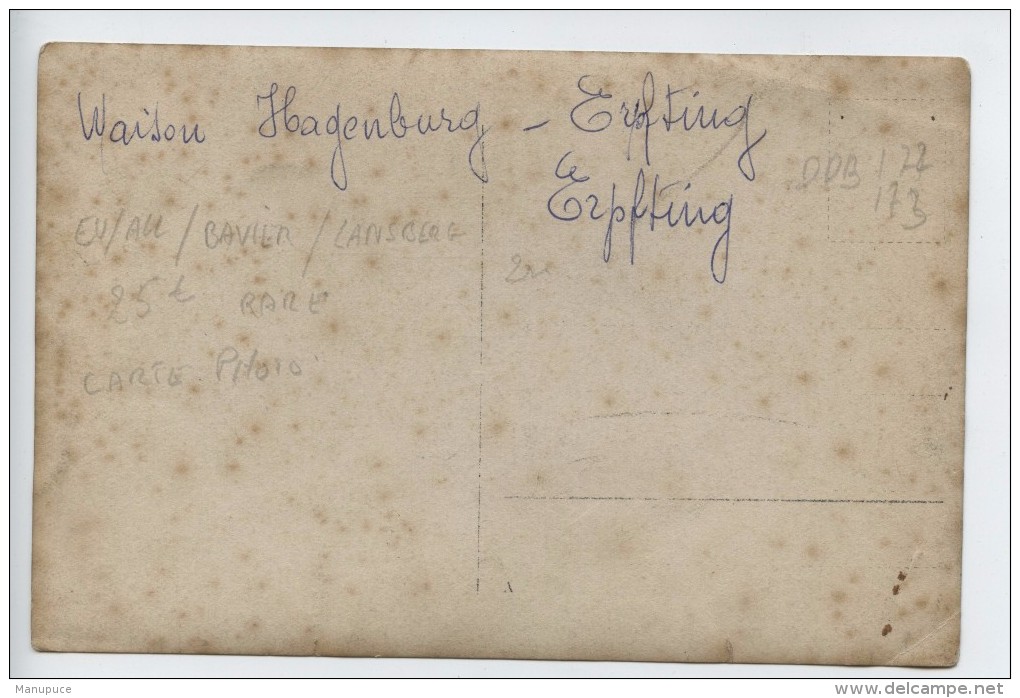 Waison Hagenburg - Erpfting
Erpfting
DDB 172
173
EU/ALL / BAVIER / LANSBERG
25€ RARE
CARTE PHOTO
Manupuce
www.delcampe.net